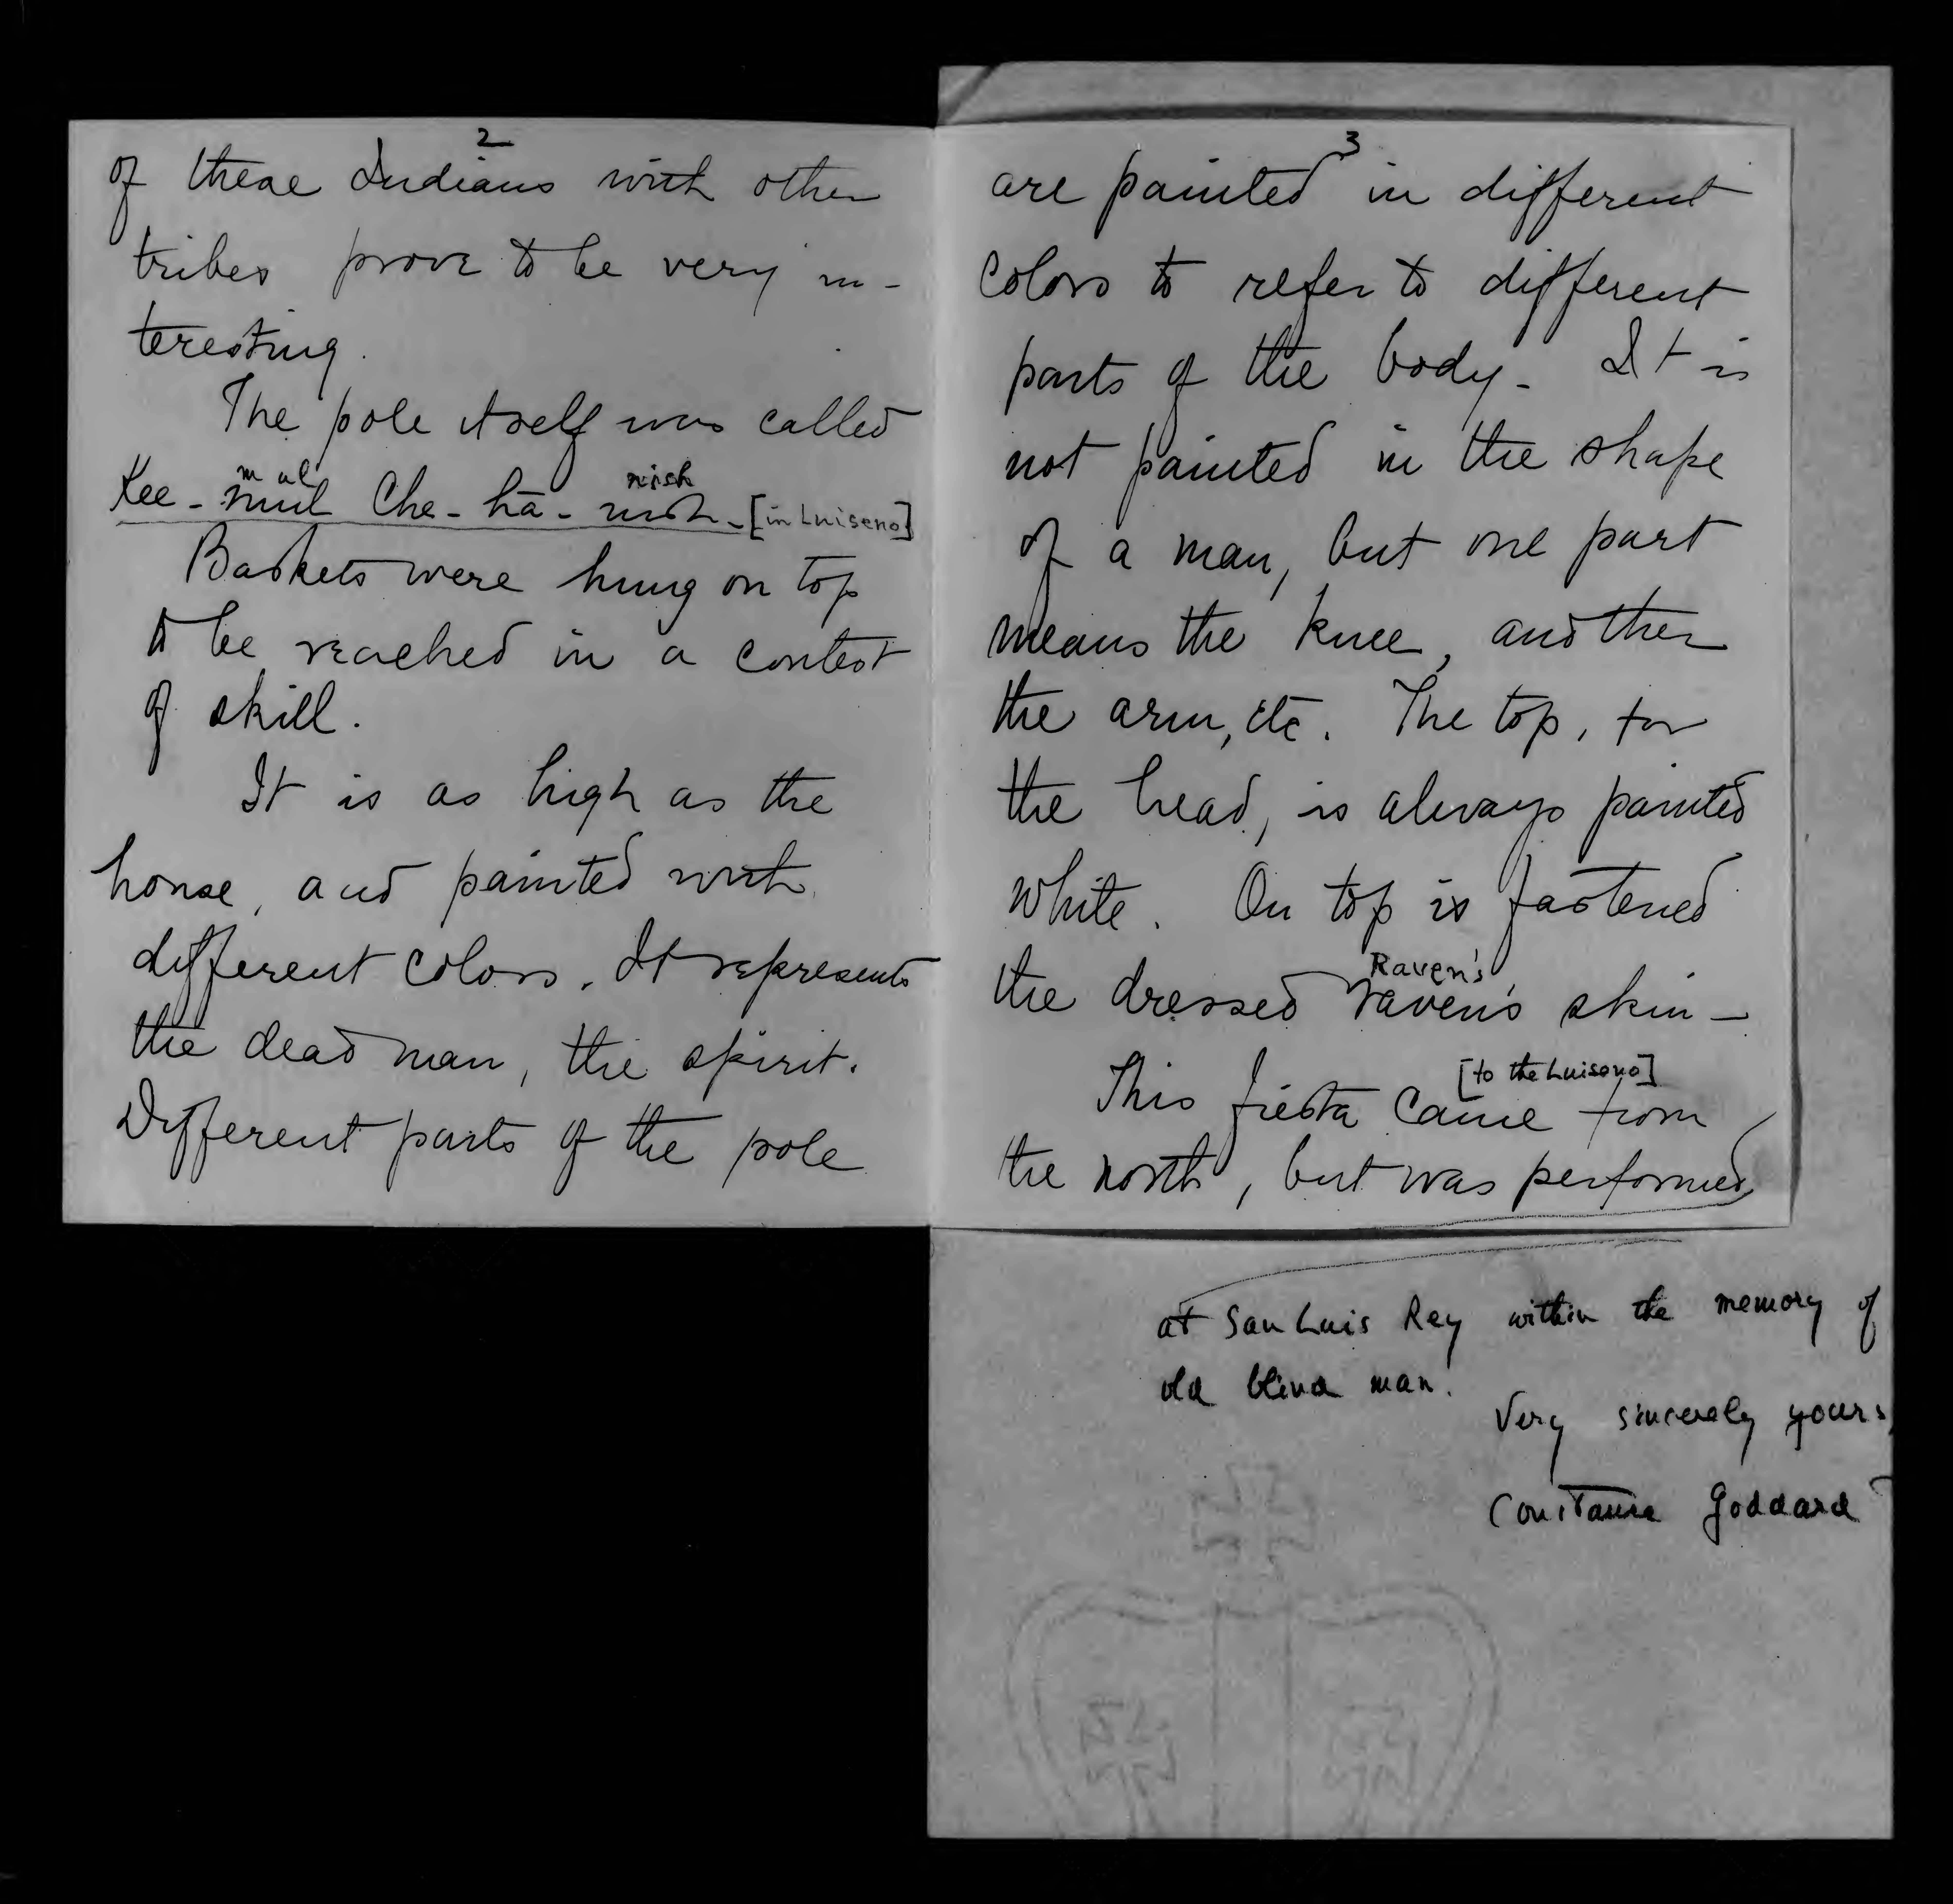 2
of these Indians with other
tribes prove to be very in-
teresting.
The pole itself was called
m al nish
Kee - mul Che - hā - nish - [in Luiseno]
Baskets were hung on top
to be reached in a contest
of skill.
It is as high as the
house, and painted with
different colors. It represents
the dead man, the spirit.
Different parts of the pole
3
are painted in different
colors to refer to different
parts of the body - It is
not painted in the shape
of a man, but one part
means the knee, another
the arm, etc. The top, for
the head, is always painted
white. On top is fastened
Raven's
the dressed raven's skin -
[to the Luiseno]
This fiesta came from
the north, but was performed
at San Luis Rey within the memory of
old blind man.
Very sincerely yours,
Constance Goddard